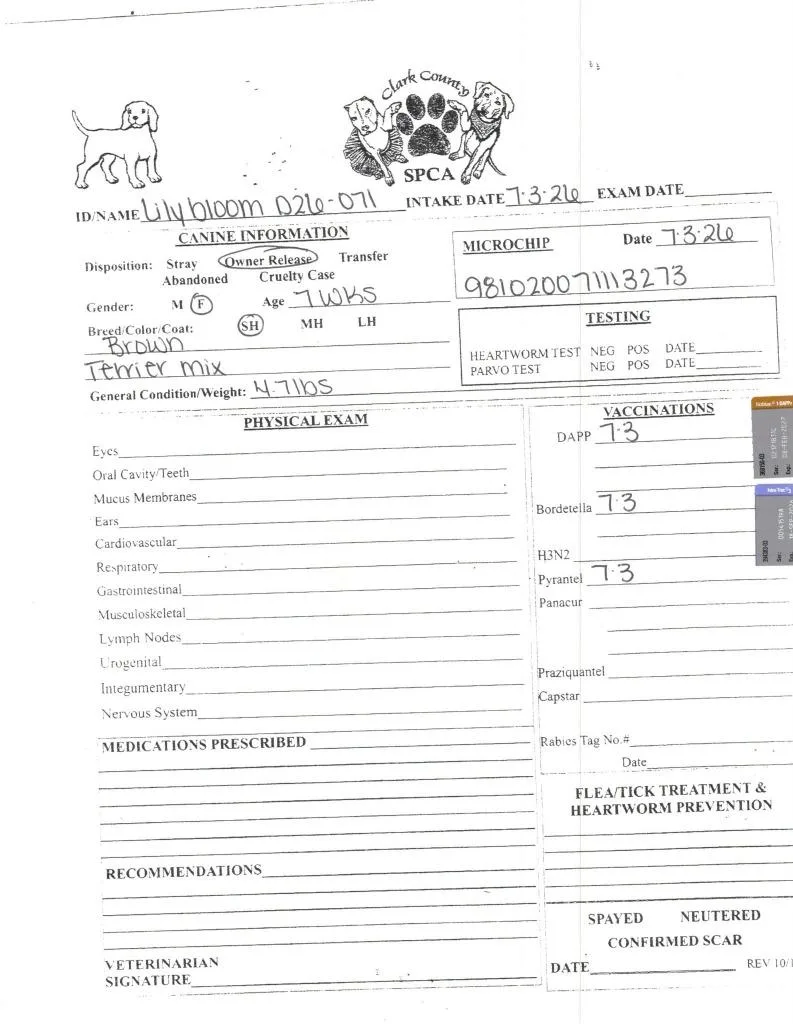 Clark County
SPCA
ID/NAME Lilybloom D26-071 INTAKE DATE 7-3-26 EXAM DATE
CANINE INFORMATION
Disposition: Stray Owner Release Transfer
Abandoned Cruelty Case
Gender: M F Age 7 WKS
Breed/Color/Coat: SH MH LH
Brown
Terrier mix
General Condition/Weight: 4.7lbs
MICROCHIP Date 7-3-26
981020071113273
TESTING
HEARTWORM TEST NEG POS DATE
PARVO TEST NEG POS DATE
PHYSICAL EXAM
Eyes
Oral Cavity/Teeth
Mucus Membranes
Ears
Cardiovascular
Respiratory
Gastrointestinal
Musculoskeletal
Lymph Nodes
Urogenital
Integumentary
Nervous System
MEDICATIONS PRESCRIBED
RECOMMENDATIONS
VETERINARIAN
SIGNATURE
VACCINATIONS
DAPP 7-3
Bordetella 7-3
H3N2
Pyrantel 7-3
Panacur
Praziquantel
Capstar
Rabies Tag No.#
Date
FLEA/TICK TREATMENT &
HEARTWORM PREVENTION
SPAYED NEUTERED
CONFIRMED SCAR
DATE REV 10/1